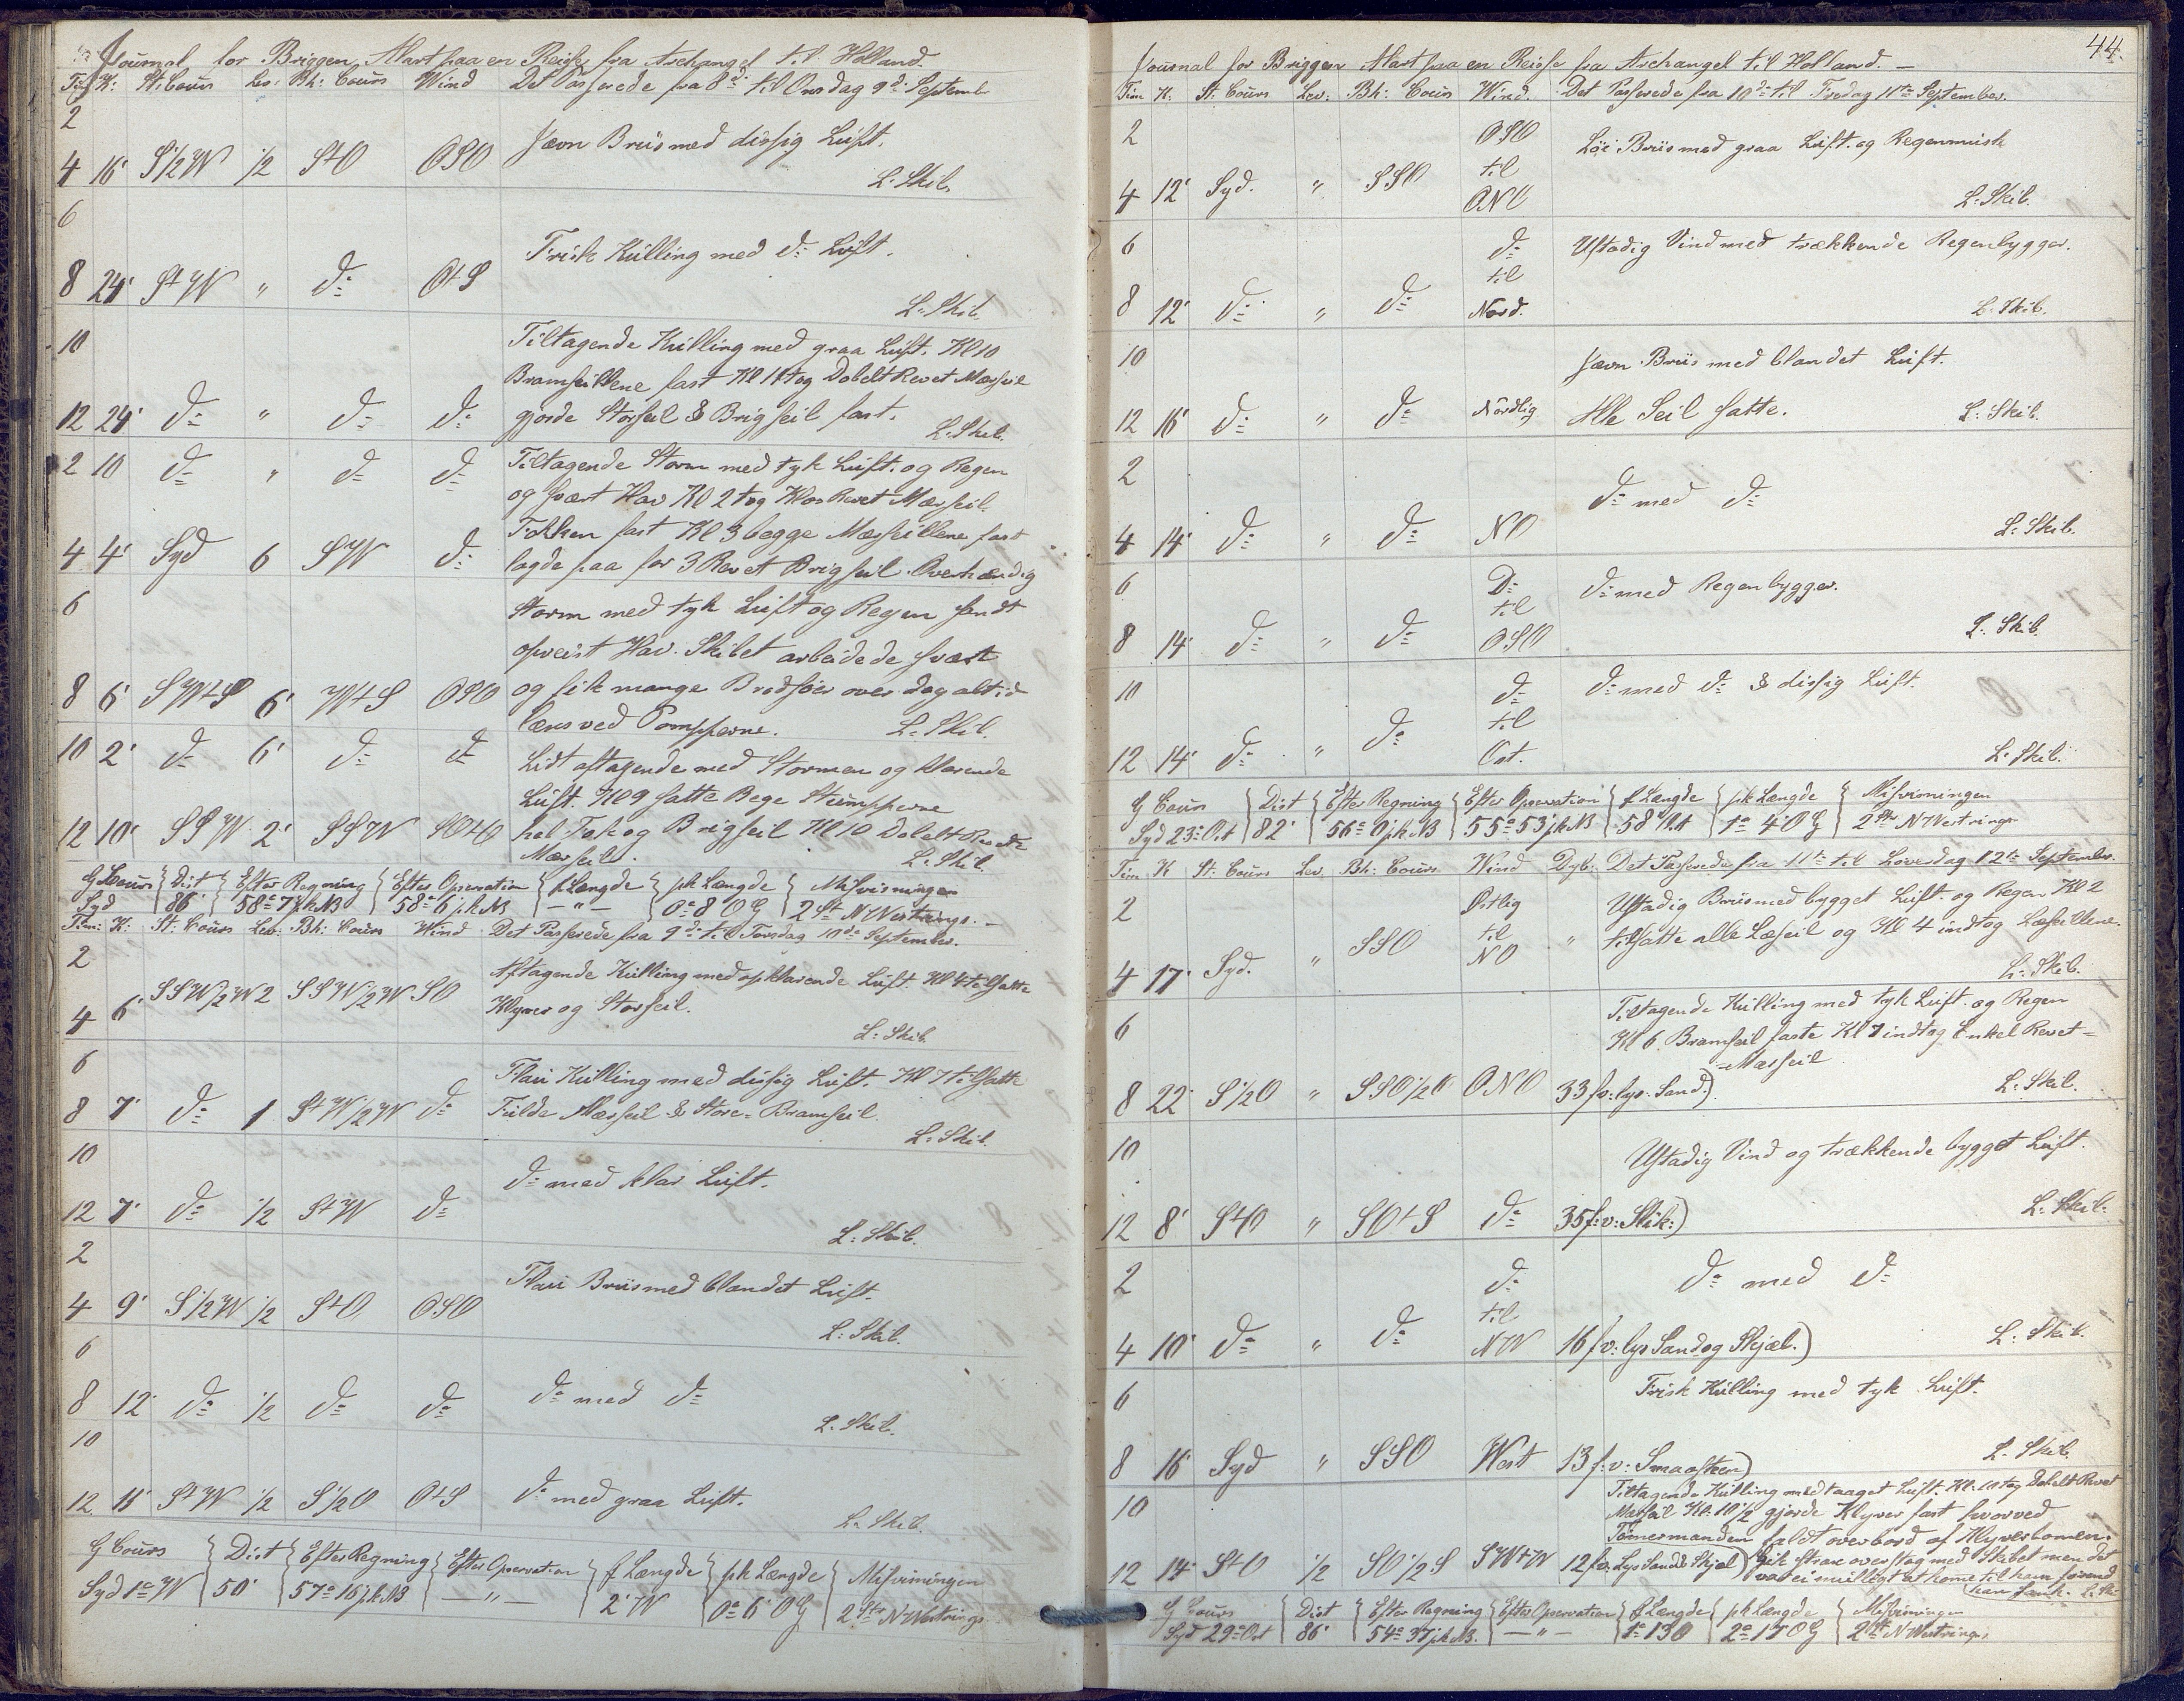 Journal for Briggen Mart paa en Reise fra Archangel til Holland.
Tim K: St: Cours Lev: Bh: Cours Wind Det Passerede fra 8de til Onsdag 9de Septembr
2
Jævn Briis med dissig Luft.
4 16' S1/2W 1/2 StO OSO L: Skib.
6
Frisk Kulling med do Luft.
8 24' StW " do OtS
L: Skib.
10 Tiltagende Kulling med graa Luft. Kl 10
Bramseillene fast Kl 11 tog Dobelt Revet Mærseil
12 24' do " do do gjorde Storseil & Brigseil fast. L: Skib.
2 10 do " do do Tiltagende Storm med tyk Luft. og Regen
og svært Hav Kl 2 tog Klos Revet Mærseil
Fokken fast Kl 3 begge Mærseillene fast
4 4' Syd 6 SW do lagde paa for 3 Revet Brigseil. Overhændig
6 Storm med tyk Luft og Regen samt
opreist Hav. Skibet arbeidede svært
8 6' SWtS 6' WtS OSO og fik mange Brodsøer over dog altid
læns ved Pompperne. L: Skib.
10 2' do 6' do do Lidt aftagende med Stormen og klarende
Luft. Kl 9 satte Bege Stumpperne
12 10' SSW 2' SSW SOtO hel Fok og Brigseil Kl 10 Dobelt Revede
Mærseil. L: Skib.
G Cours Dist Efter Regning Efter Opservation f Længde pk Længde Misvisningen
Syd 86' 58° 7' pk NB 58° 6' pk NB — " — 0° 8' OG 2 St NWestrings.
Tim: K: St: Cours Lev: Bh: Cours Wind Det Passerede fra 9de til Torsdag 10de September.
2 Aftagende Kulling med opklarende Luft. Kl 4 tilsatte
4 6' SSW1/2W 2 SSW1/2W SO Klyver og Storseil.
L: Skib.
6 Flau Kulling med dissig Luft. Kl 7 tilsatte
8 7' do 1 StW1/2W do Fulde Mærseil & Store-Bramseil.
L: Skib.
10
do med klar Luft.
12 7' do 1/2 StW do
L: Skib.
2
Flau Briis med blandet Luft.
4 9' S1/2W 1/2 StO OSO
L: Skib.
6
8 12' do 1/2 do do do med do
L: Skib.
10
12 11' StW 1/2 S1/2O OtS do med graa Luft.
L: Skib.
G Cours Dist Efter Regning Efter Opservation f Længde pk Længde Misvisningen
Syd 1° W 50' 57° 16' pk NB — " — 2' W 0° 6' OG 2 Str NWestrings
44.
Journal for Briggen Mart paa en Reise fra Archangel til Holland. —
Tim K: St: Cours Lev: Bh: Cours Wind. Det Passerede fra 10de til Fredag 11te September.
2 OSO Løi Briis med graa Luft. og Regenmusk
4 12' Syd. " SSO til
ONO L: Skib.
6 do Ustadig Vind med trækkende Regenbygger.
til
8 12' do " do Nord. L: Skib.
10 Jævn Briis med blandet Luft.
12 16' do " do Nordlig Alle Seil satte. L: Skib.
2
do med do
4 14' do " do NO L: Skib.
6 Do do med Regenbygger.
til
8 14' do " do OSO L: Skib.
10 do do med do & dissig Luft.
til
12 14' do " do Ost. L: Skib.
G Cours Dist Efter Regning Efter Opservation f Længde pk Længde Misvisningen
Syd 23° Ost 82' 56° 0' pk NB 55° 53' pk NB 58' Ost 1° 4' OG 2 Str NWestrings
Tim K St: Cours Lev. Bh: Cours Wind Dyb: Det Passerede fra 11te til Løverdag 12te September.
2 Østlig Ustadig Briis med bygget Luft. og Regen Kl 2
til " tilsatte alle Læseil og Kl 4 indtog Læseillene.
4 17' Syd. " SSO NO L: Skib.
6 Tiltagende Kulling med tyk Luft. og Regen
Kl 6. Bramseil faste Kl 7 indtog Enkel Revet-
-Mærseil
8 22' S1/2O " SSO1/2O ONO 33 fv: lys: Sand:) L: Skib.
10
Ustadig Vind og trækkende bygget Luft.
12 8' StO " SOtS do 35 f:v: Slik:) L: Skib.
2 do do med do
til
4 10' do " do NW 16 fv: lys Sand og Skjæl.) L: Skib.
6 Frisk Kulling med tyk Luft.
8 16' Syd " SSO West 13 f:v: Smaasten) L: Skib.
10 Tiltagende Kulling med taaget Luft. Kl: 10 tog Dobelt Revet
Mærseil Kl: 10 1/2 gjorde Klyver fast hvorved
Tømermanden faldt overbord af Klyverbomen.
12 14' StO 1/2 SO1/2S SWtW 12 fv: Lys Sand & Skjæl) Gik strax over stag med Skibet men det
var ei muligt at kome til ham forend
han sank. L: Ski
G Cours Dist Efter Regning Efter Opservation f Længde pk Længde Misvisningen
Syd 29° Ost 86' 54° 37' pk NB. — " — 1° 13' O 2° 17' OG 2 Str NWestrings.